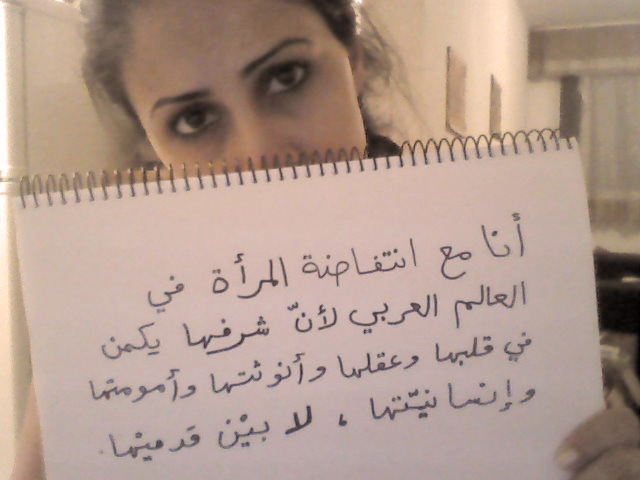 أنا مع انتفاضة المرأة في
العالم العربي لأنّ شرفها يكمن
في قلبها وعقلها وأنوثتها وأمومتها
وإنسانيّتها ، لا بيْن قدميْها.